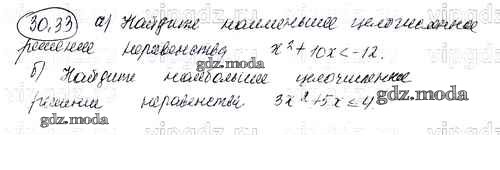 30.33 а) Найдите наименьшее целочисленное
решение неравенства x² + 10x < -12.
б) Найдите наибольшее целочисленное
решение неравенства 3x² + 5x ≤ 4
gdz.moda
gdz.moda
gdz.moda